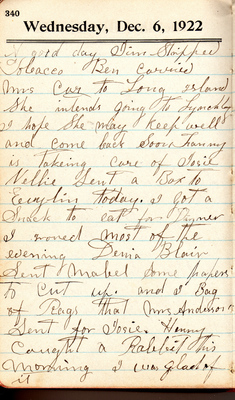 340
Wednesday, Dec. 6, 1922
A good day Jim Stripped
Tobacco Ben carried
Mrs Car to Long island
She intends going to Lynchburg
I hope She may keep well
and come back Soon Fanny
is takeing care of Josie
Nellie Sent a Box to
today. I got a
Snack to eat for Dinner
I ironed most of the
evening Denia Blair
Sent Mabel some papers
to cut up. and a Bag
of Rags that Mrs Anderson
Sent for Josie. Henny
caught a Rabbit this
morning I was glad of
it